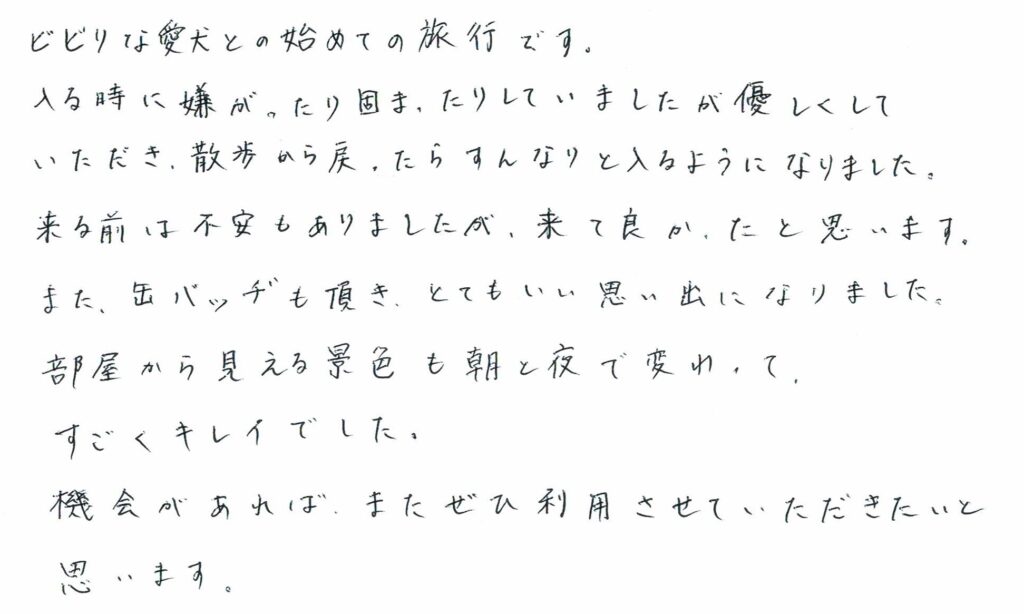 ビビリな愛犬との始めての旅行です。
入る時に嫌がったり固まったりしていましたが優しくして
いただき、散歩から戻ったらすんなりと入るようになりました。
来る前は不安もありましたが、来て良かったと思います。
また、缶バッヂも頂き、とてもいい思い出になりました。
部屋から見える景色も朝と夜で変わって、
すごくキレイでした。
機会があれば、またぜひ利用させていただきたいと
思います。